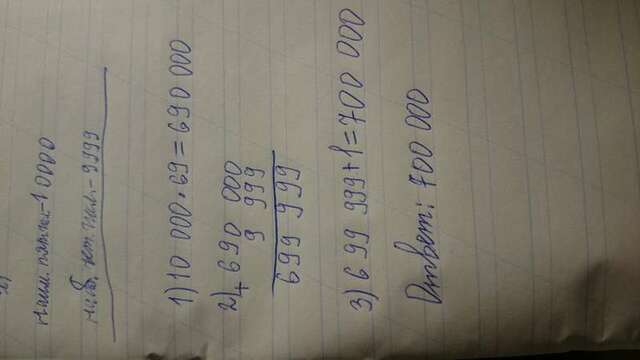 наим. пятизн-10000
наиб. чет. знач-9999
1) 10 000 · 69 = 690 000
2) + 690 000
9 999
699 999
3) 699 999 + 1 = 700 000
Ответ: 700 000